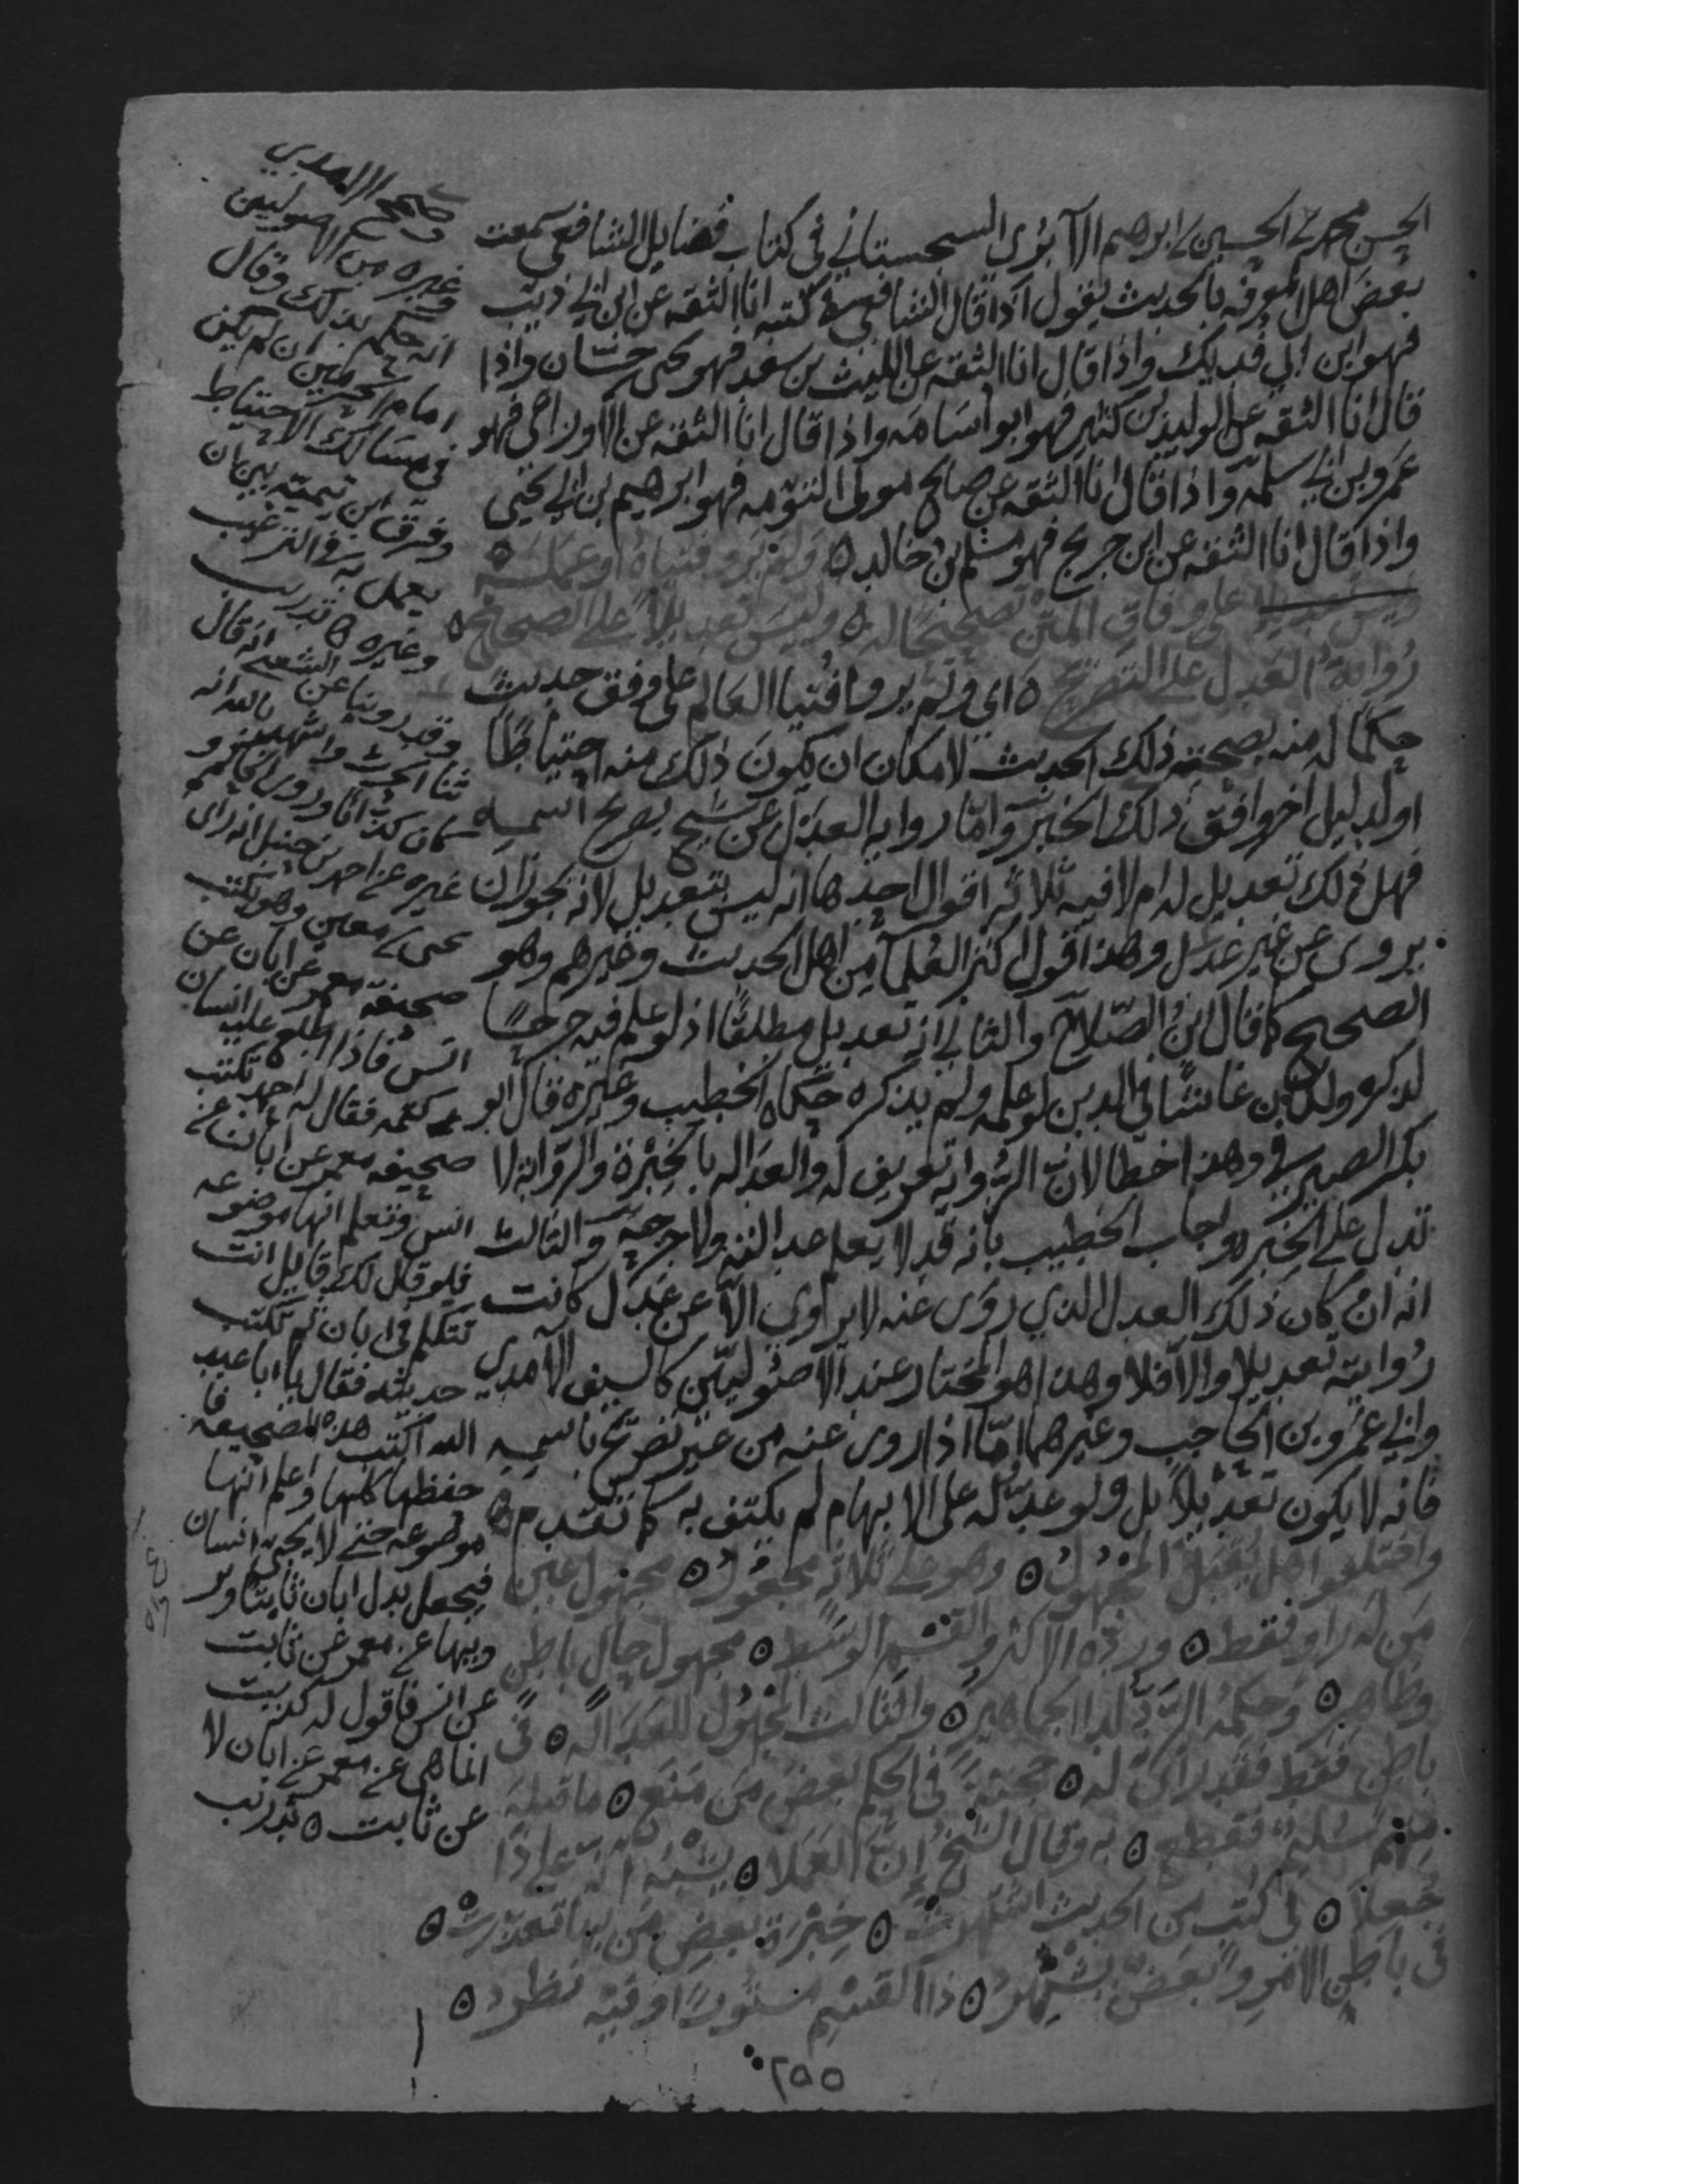 الحسن محمد بن الحسين بن ابرهيم الآبُرِى السجستاني في كتاب فضايل الشافعي سمعت
بعض اهل المعرفه بالحديث يقول اذا قال الشافعي في كتبه انا الثقه عن ابن ابي ذيب
فهو ابن ابي فديك واذا قال انا الثقه عن الليث بن سعد فهو يحيى بن حسان واذا
قال انا الثقه عن الوليد بن كثير فهو ابو اسامه واذا قال انا الثقه عن الاوزاعي فهو
عمرو بن ابي سلمه واذا قال انا الثقه عن صالح مولى التوَّمه فهو ابرهيم بن ابي يحيى
واذا قال انا الثقه عن ابن جريج فهو مسلم بن خالد ه ولم يروا فتياهُ او عمله ه
على وفاق المتن تصحيحًا له ه وليس تعديلاً على الصحيح ه
رواية العدل على التصريح ه اي ولم يروا فُتيا العالم على وفق حديث
حكمًا له منه بصحة ذلك الحديث لامكان ان يكون ذلك منه احتياطًا
او لدليل اخر وافق ذلك الخبر واما روايه العدل عن شيخ بصريح اسمه
فهل ذلك تعديل له ام لا فيه ثلاثه اقوال احدها انه ليس بتعديل لانه يجوز ان
يروى عن غير عدل وهذا قول اكثر العُلما من اهل الحديث وغيرهم وهو
الصحيح كما قال ابن الصّلاح والثاني انه تعديل مطلقًا اذ لو علم فيه جرحًا
لذكره ولكان غاشًّا في الدين لو علمه ولم يذكره حكاه الخطيب وغيره قال ابو
بكر الصيرفي وهذا خطا لانّ الرّوايه تعريف له والعداله بالخِبْرة والرّوايه لا
تدل على الخبره واجاب الخطيب بانه قد لا يعلم عدالته ولا جرحه والثالث
انه انْ كان ذلك العدل الذي روَى عنه لا يروي الّا عن عَدْل كانت
رُوايته تعديلا والّا فلا وهذا هو المختار عند الاصُوليّين كالسيف الآمدي
وابي عمرو بن الحاجب وغيرهما امّا اذا روى عنه من غير تصريح باسمه
فانه لا يكون تعديْلاً بل ولو عدّله على الابهام لم يكتف به كما تقدم ه
واختلفوا هل يُقْبل المجهُولُ ه وهو على ثلاثه مجعُولُ ه مجهول عين
مَن لَه راوٍ فقط ه وردّه الاكثر والقسم الوسط ه مجهول حال باطن
وظاهر ه وحكمُه الردّ لدا الجماهير ه والثالث المجهُول للعَدَاله ه في
باطن فقط فقد راى له ه حجّيةً في الحكم بعضُ مَن مَنع ه ما قبلهَ
منهم سُليم فقطع ه به وقال الشيخ اِنّ العَملا ه يُشْبه انّه على ذا
جُعلا ه في كُتب من الحديث اشتهرتْ ه خِبْرَة بعضِ مَن بها تعذّرتْ ه
في باطن الامر وبعضٌ يُشهِرُ ه ذا القسم مستُورًا وفيه نظر ه
٢٥٥
وصحح الامدي
غيره من الاصوليين
انه حكم بذلك وقال
امام الحرمين ان لم يكن
في مسالك الاحتياط
وفرق ابن تيميه بين ان
يعمل به في الترغيب
وغيره ه تدريب
وقد روينا عن الشعبي انه قال
ثنا الحرث واشهد بالله انه
كان كذابا وروى الحاكم و
غيره عن احمد بن حنبل انه راى
يحيى بن معين وهو يكتب
صحيفة معمر عن ابان عن
انس فاذا اطلع عليه انسان
كتمه فقال له احمد تكتب
صحيفه معمر عن ابان عن
انس وتعلم انها موضوعه
فلو قال لك قايل انت
تتكلم في ابان ثم تكتب
حديثه فقال يا ابا عبد
الله اكتب هذه الصحيفه فا
حفظها كلها واعلم انها
موضوعه حتى لا يجى انسان
فيجعل بدل ابان ثابتا وير
ويها عن معمر عن ثابت
عن انس فاقول له كذبت
انما هي عن معمر عن ابان لا
عن ثابت ه تدريب